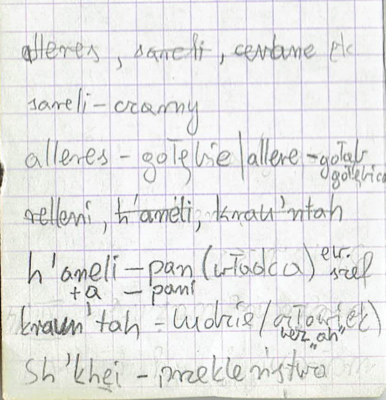 alleres, saneli,
saneli - czarny
alleres - gołębie / allere - gołąb
gołębica
relleni, h'aneli, krau'ntah
h'aneli - pan (władca) ew. szef
+a - pani
kraun'tah - ludzie / (człowiek)
bez „ah"
Sh'khei - przekleństwo